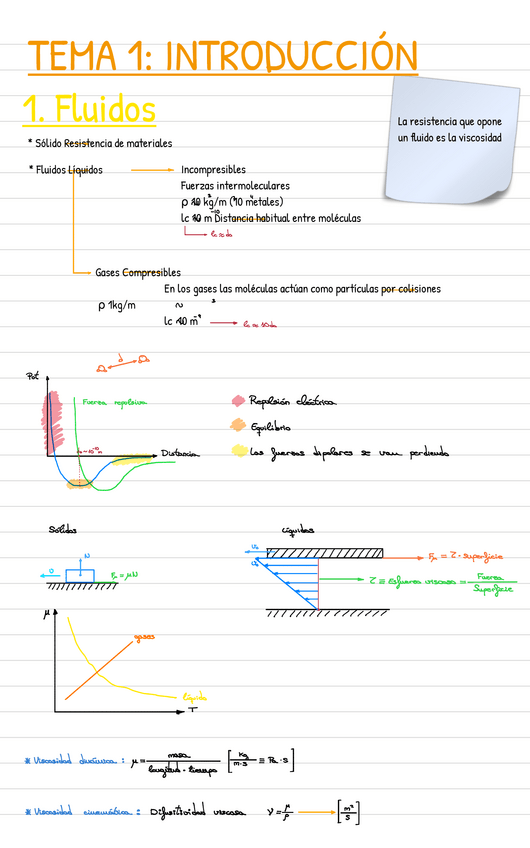 TEMA 1: INTRODUCCIÓN
1. Fluidos
La resistencia que opone
un fluido es la viscosidad
* Sólido Resistencia de materiales
* Fluidos Líquidos
Incompresibles
Fuerzas intermoleculares
kg/m (10 metales)
lc 10 m Distancia habitual entre moléculas
lc ≈ do
Gases Compresibles
En los gases las moléculas actúan como partículas por colisiones
ρ 1kg/m
lc ≈ 10 do
d
Pot
Fuerza repulsiva
Distancia
Repulsión eléctrica
Equilibrio
Las fuerzas dipolares se van perdiendo
Sólidos
Líquidos
N
Fμ = μN
Fμ = τ · superficie
τ ≡ Esfuerzo viscoso = Fuerza / Superficie
μ
gases
líquido
T
* Viscosidad dinámica : μ = masa / longitud · tiempo [kg / m·s ≡ Pa · s]
* Viscosidad cinemática : Difusitividad viscosa ν = μ / ρ → [m² / s]